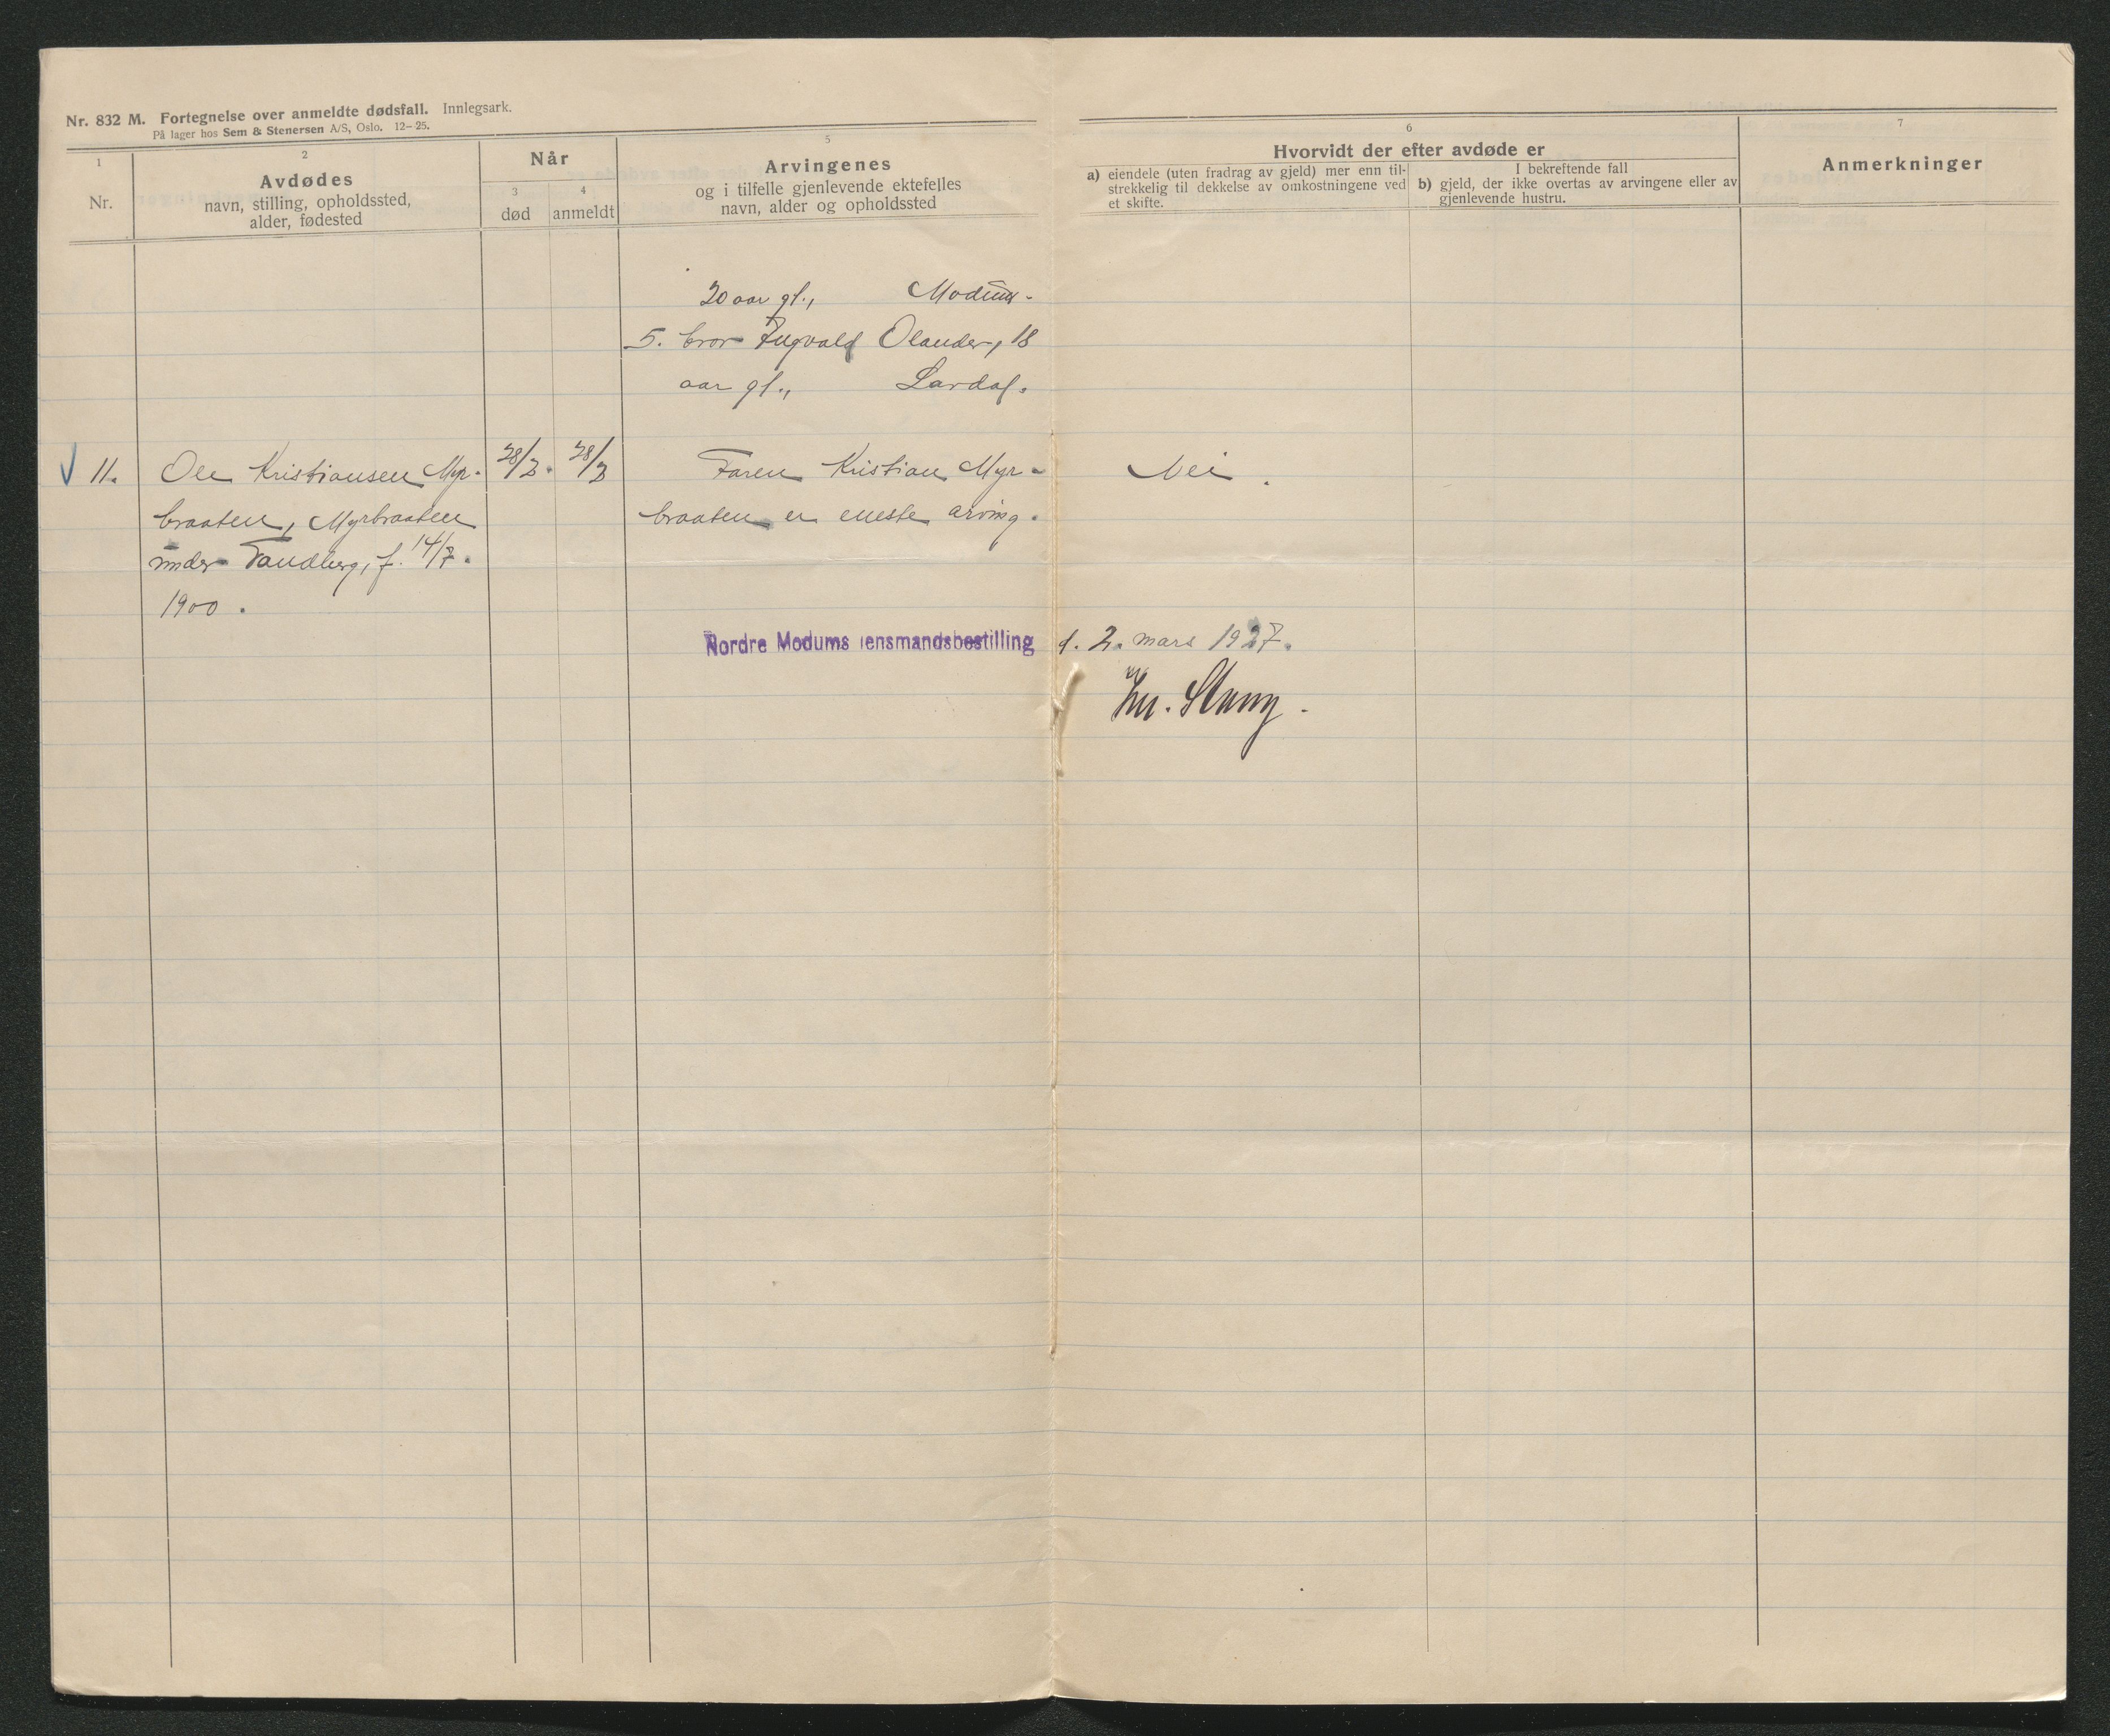 Nr. 832 M. Fortegnelse over anmeldte dødsfall. Innlegsark.
På lager hos Sem & Stenersen A/S, Oslo. 12-25.
1
Nr.
2
Avdødes
navn, stilling, opholdssted,
alder, fødested
Når
3
død
4
anmeldt
5
Arvingenes
og i tilfelle gjenlevende ektefelles
navn, alder og opholdssted
6
Hvorvidt der efter avdøde er
a) eiendele (uten fradrag av gjeld) mer enn til-
strekkelig til dekkelse av omkostningene ved
et skifte.
I bekreftende fall
b) gjeld, der ikke overtas av arvingene eller av
gjenlevende hustru.
7
Anmerkninger
20 aar gl., Modum.
5. bror Ingvald Olander, 18
aar gl., Lardal.
11. Ole Kristiansen Myr- 28/2. 28/2 Faren Kristian Myr- Nei.
braaten, Myrbraaten braaten er eneste arving.
under Tandberg, f. 14/7.
1900.
Nordre Modums lensmandsbestilling d. 2. mars 1927.